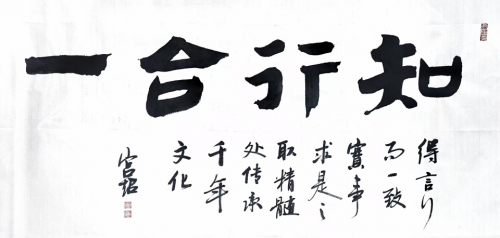 知行合一
得言行
而一致
實事
求是之
取精髓
处传承
千年
文化